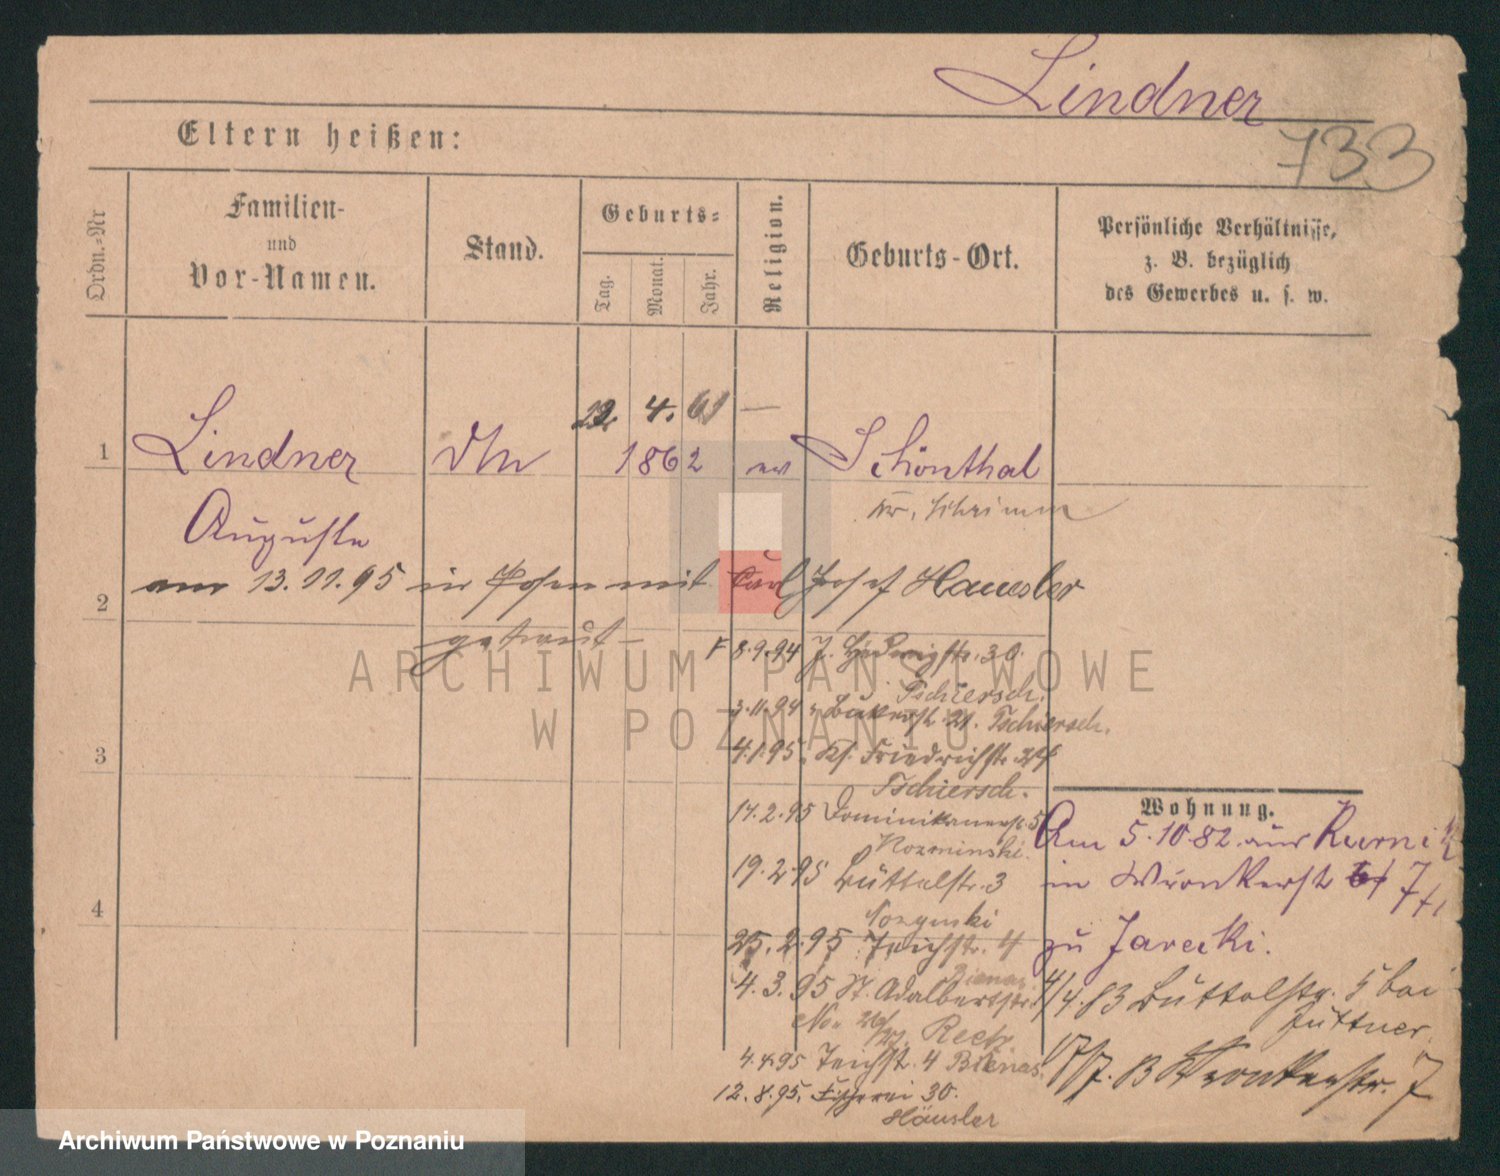 Lindner
733
Eltern heißen:
Ordn.=Nr
Familien-
und
Vor-Namen.
Stand.
Geburts=
Tag.
Monat.
Jahr.
Religion.
Geburts-Ort.
Persönliche Verhältnisse,
z. B. bezüglich
des Gewerbes u. s. w.
22. 4. 61 —
1 Lindner 1862 ev Schönthal
Kr. Schrimm
Auguste
am 13.11.95 in Posen mit Carl Josef Haeusler
2
getraut —
8.9.94 Hedwigstr. 30.
Tschiersch.
3.11.94 21. Tschiersch.
4.1.95. Kl. Friedrichstr.
3
Tschiersch.
Wohnung.
14.2.95 Dominikanerst. 5
Kozminski.
Am 5.10.82 aus Kurnik
19.2.95 Büttelstr. 3
in Wronkerstr 7
4
25.2.95 Teichstr. 4
zu Jarecki.
Bienas
4.3.95 St. Adalbertstr.
4/4.83 Büttelstr. 5 bei
Jüttner.
No. Reetz.
4.4.95 Teichst. 4 Bienas.
17/7. B Wronkerstr. 7
12.8.95. Fischerei 30.
Häusler
ARCHIWUM PAŃSTWOWE
W POZNANIU
Archiwum Państwowe w Poznaniu